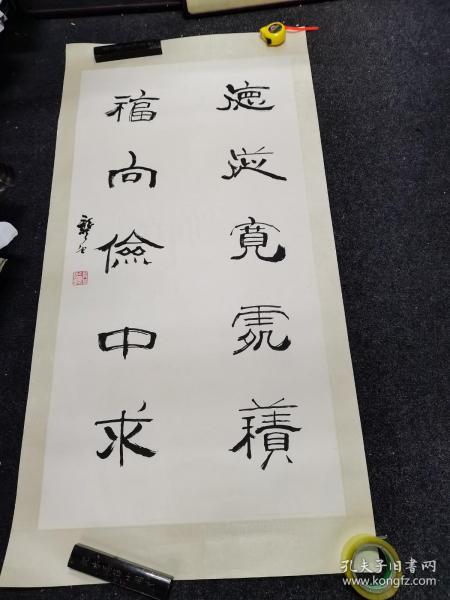 德從寬處積
福向儉中求
孔夫子旧书网
www.kongfz.com